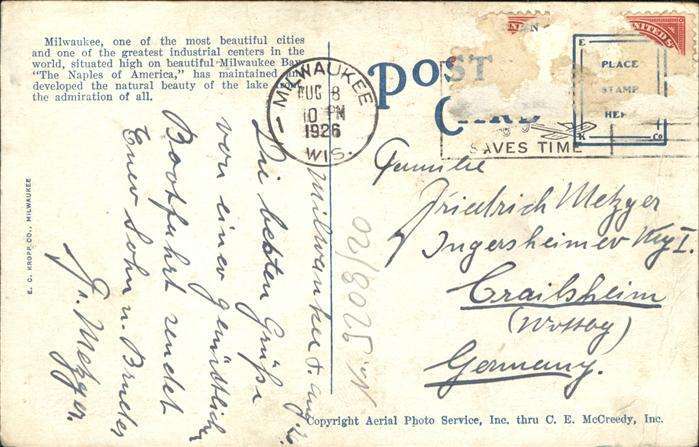 Milwaukee, one of the most beautiful cities
and one of the greatest industrial centers in the
world, situated high on beautiful Milwaukee Bay
"The Naples of America," has maintained
developed the natural beauty of the lake
the admiration of all.
POST
CARD
MILWAUKEE
AUG 8
10 PM
1926
WIS.
SAVES TIME
PLACE
STAMP
HERE
E
K
Co
E. C. KROPP CO., MILWAUKEE
Milwaukee
Die besten Grüße
von einer gemütlichen
Bootfahrt sendet
Euer Sohn u. Bruder
Fr. Metzger.
Familie
Friedrich Metzger
Ingersheimer
Crailsheim
Germany.
Copyright Aerial Photo Service, Inc. thru C. E. McCreedy, Inc.